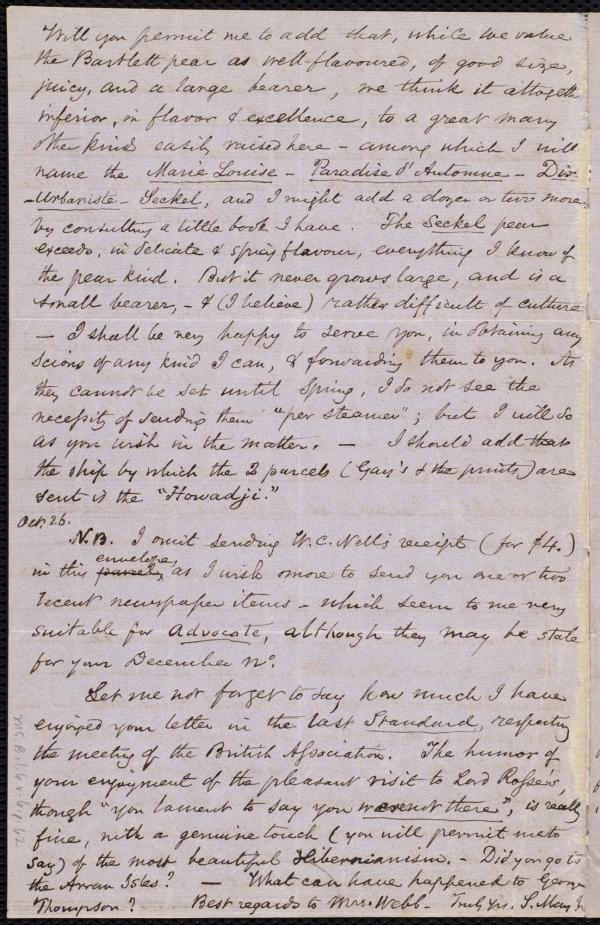 Will you permit me to add that, while we value
the Bartlett pear as well-flavoured, of good size,
juicy, and a large bearer, we think it altogeth
inferior, in flavor & excellence, to a great many
other kinds easily raised here - among which I will
name the Marie Louise - Paradise d'Automne - Dix
-Urbaniste - Seckel, and I might add a dozen or two more
by consulting a little book I have. The Seckel pear
exceeds, in delicate & spicy flavour, everything I know of
the pear kind. But it never grows large, and is a
small bearer, - & (I believe) rather difficult of culture
- I shall be very happy to serve you, in obtaining any
scions of any kind I can, & forwarding them to you. As
they cannot be set until Spring, I do not see the
necessity of sending them "per steamer"; but I will do
as you wish in the matter. - I should add that
the ship by which the 2 parcels (Gay's & the prints) are
sent is the "Howadji."
Oct. 26.
N.B. I omit sending W.C. Nell's receipt (for $4.)
envelope,
in this parcel, as I wish to send you one or two
recent newspaper items - which seem to me very
suitable for Advocate, although they may be stale
for your December no.
Let me not forget to say how much I have
enjoyed your letter in the last Standard, respecting
the meeting of the British Association. The humor of
your enjoyment of the pleasant visit to Lord Rosse's,
though "you lament to say you were not there", is really
fine, with a genuine touch (you will permit me to
say) of the most beautiful Hibernianism. - Did you go to
the Arran Isles? - What can have happened to George
Thompson? Best regards to Mrs. Webb - Truly yrs. S. May Jr